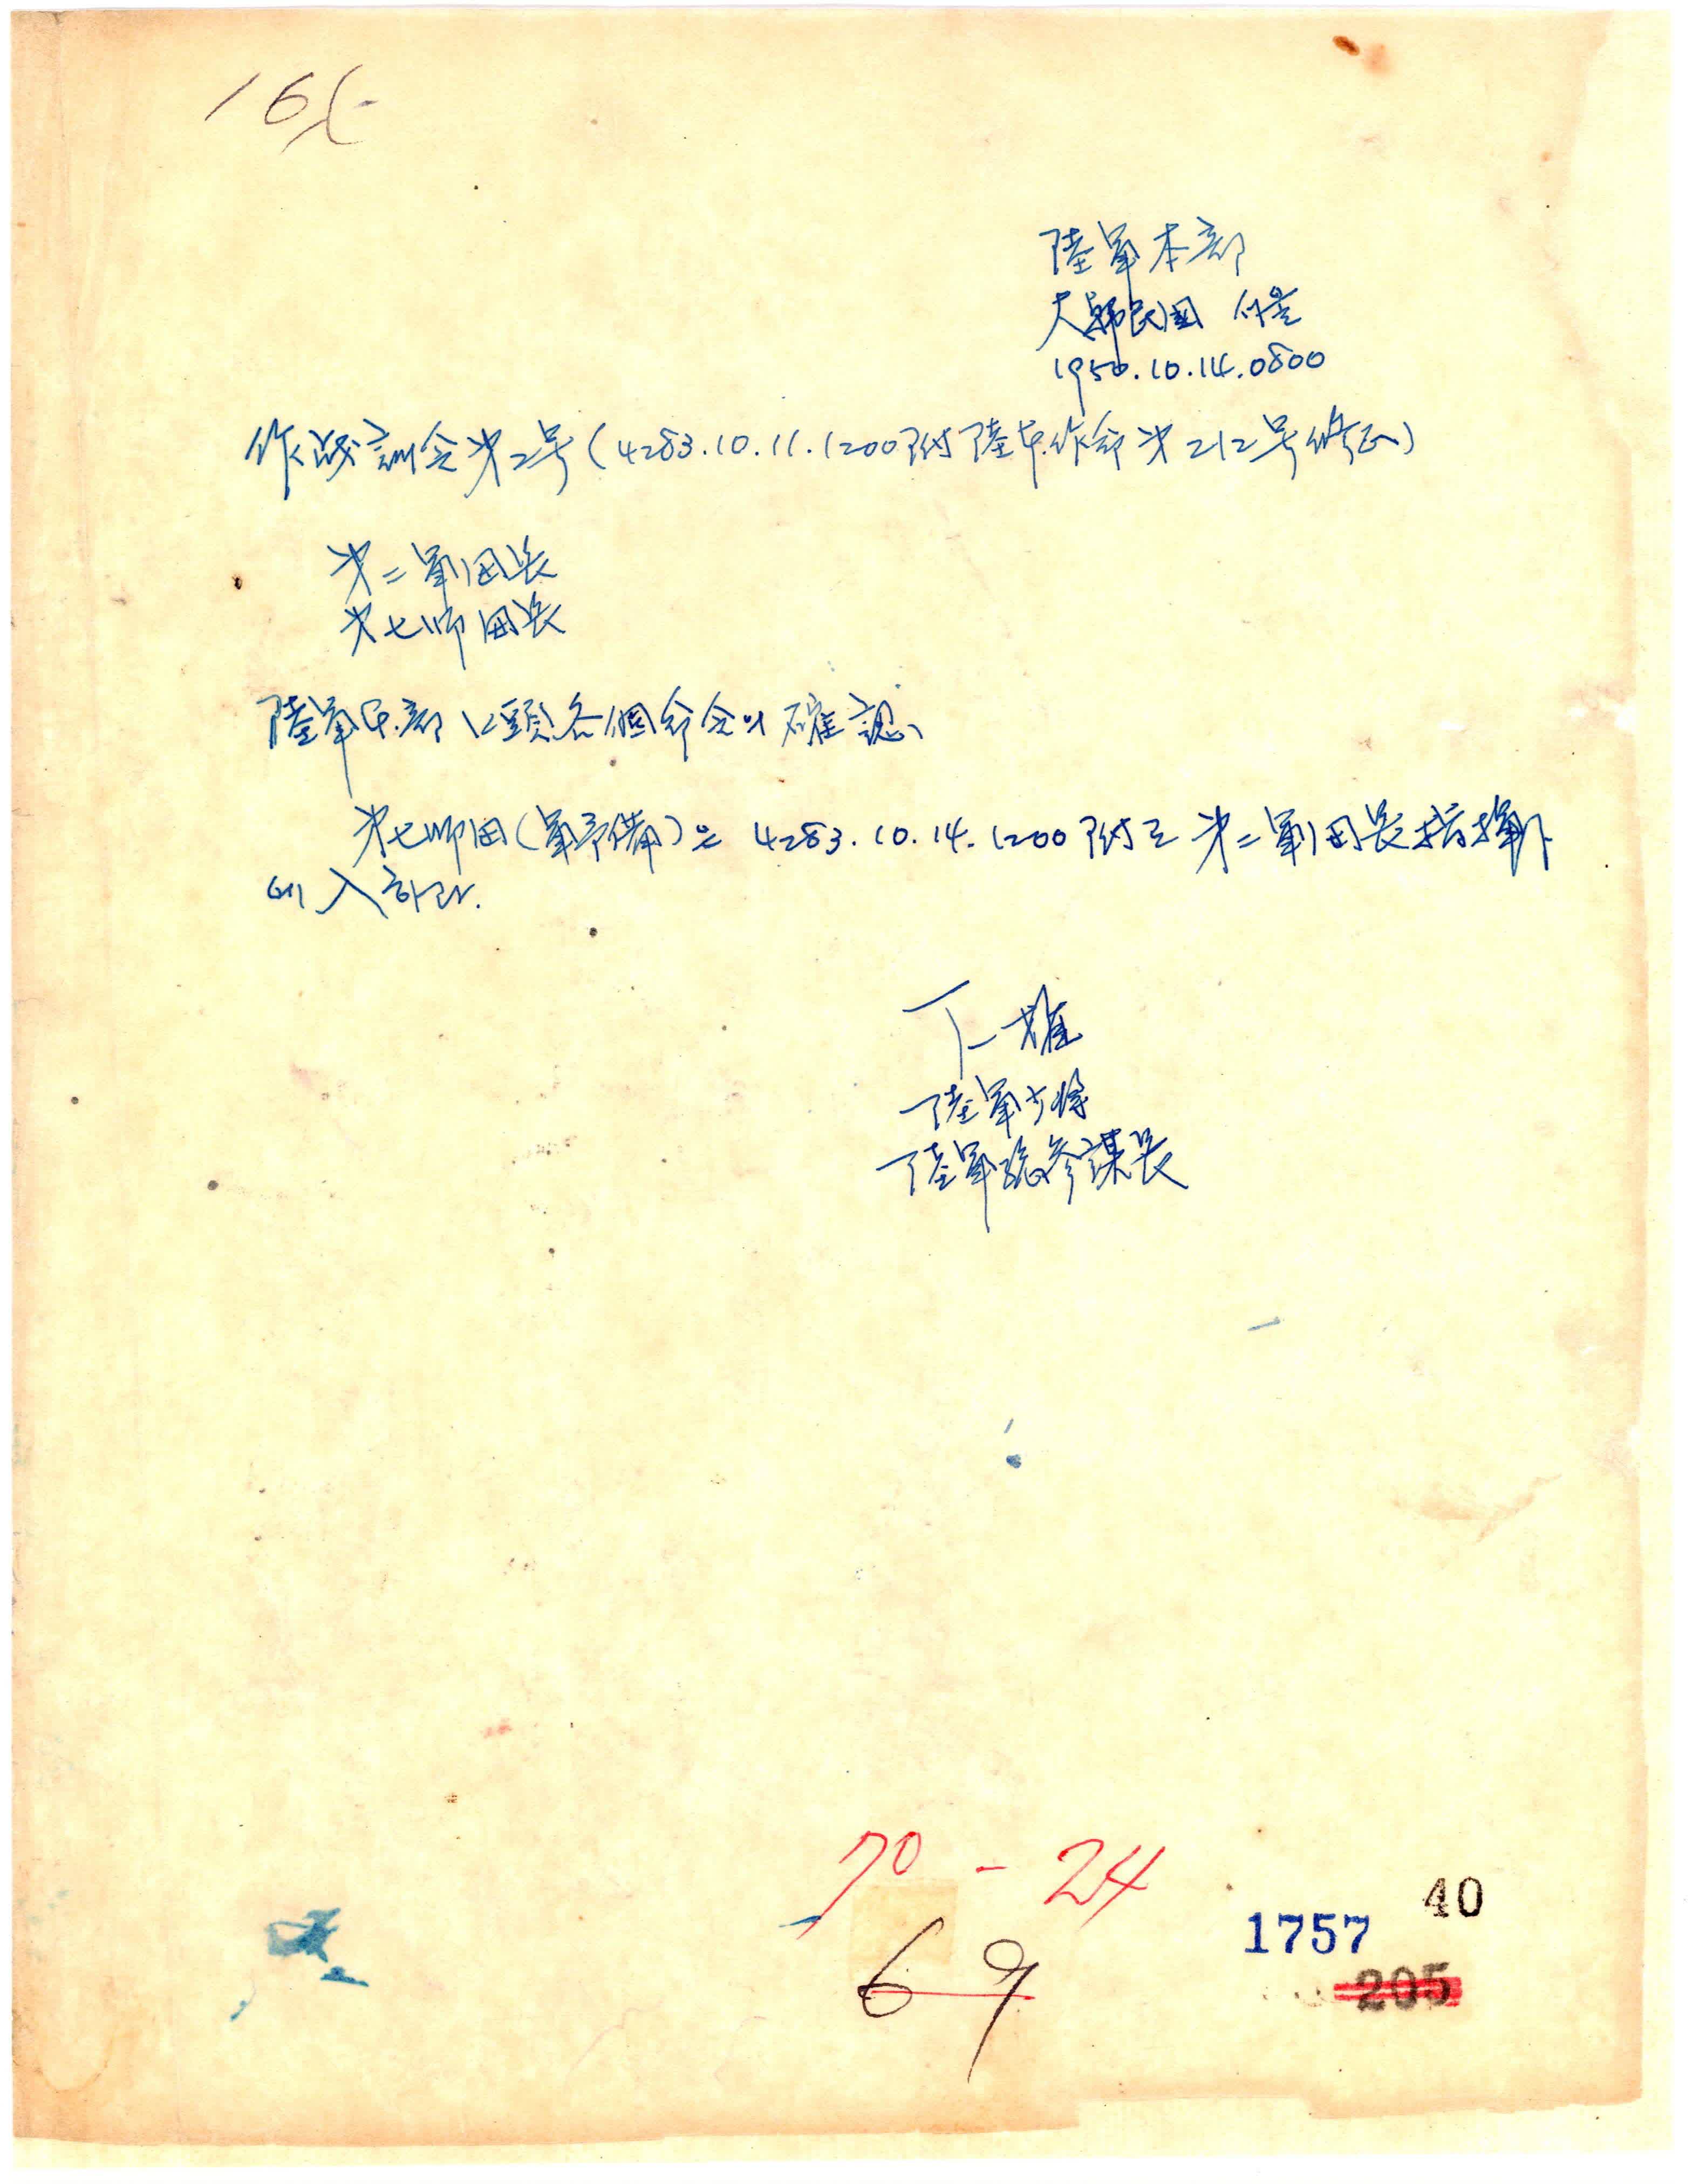 陸軍本部
大韓民国 서울
1950.10.14.0800
作战訓令第2号(4283.10.11.1200附陸本作命第212号修正)
第二軍団長
第七師団長
陸軍本部 口頭各個命令의 確認
第七師団(軍予備)은 4283.10.14.1200附로 第二軍団長指揮下
에 入하라.
丁一權
陸軍少将
陸軍総参謀長
70-24
69
40
1757
205